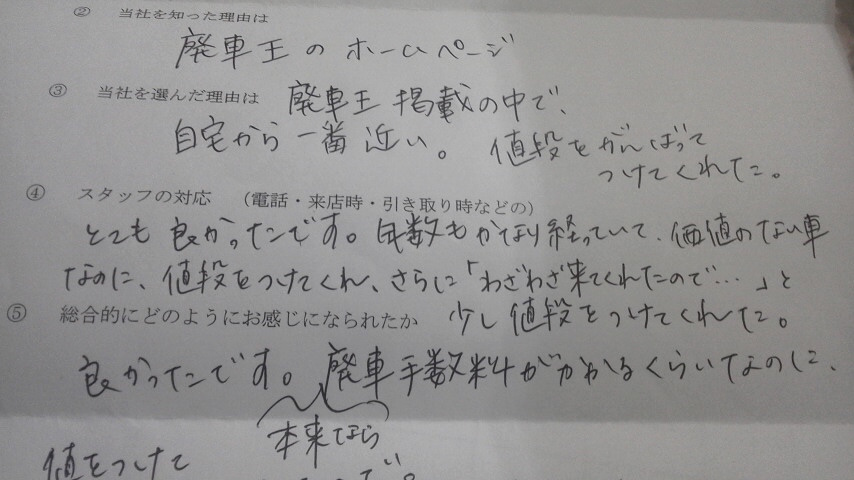 ② 当社を知った理由は
廃車王のホームページ
③ 当社を選んだ理由は 廃車王掲載の中で、
自宅から一番近い。 値段をがんばって
つけてくれた。
④ スタッフの対応 (電話・来店時・引き取り時などの)
とても良かったです。年数もかなり経っていて、価値のない車
なのに、値段をつけてくれ、さらに「わざわざ来てくれたので…」と
少し値段をつけてくれた。
⑤ 総合的にどのようにお感じになられたか
良かったです。廃車手数料がかかるくらいなのに、
本来なら
値をつけて